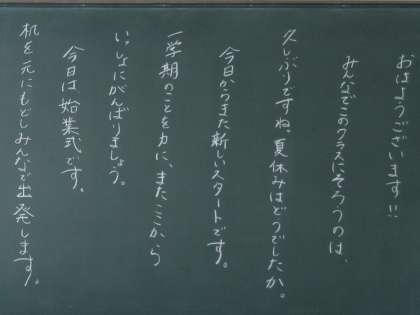 おはようございます!!
みんなでこのクラスにそろうのは、
久しぶりですね。夏休みはどうでしたか。
今日からまた新しいスタートです。
一学期のことを力に、またここから
いっしょにがんばりましょう。
今日は始業式です。
机を元にもどしみんなで出発します。